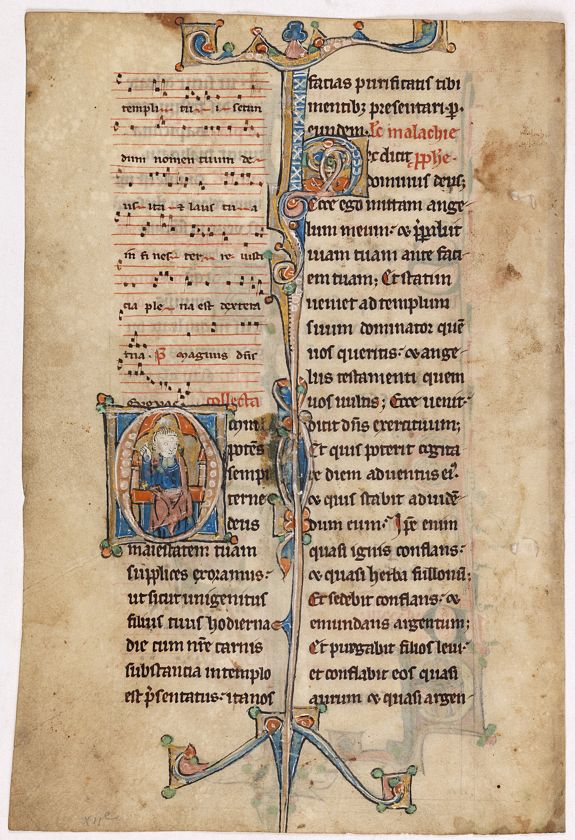 templi tu i secun
dum nomen tuum de
us ita & laus tu a
in fi nes ter re iusti
cia ple na est dextera
tua. Magnus dñs
collecta
sempi
terne
deus
maiestatem tuam
supplices exoramus.
ut sicut unigenitus
filius tuus hodierna
die cum nr̃e carnis
substancia in templo
est p̃sentatus. ita nos
facias purificatis tibi
mentib; presentari. p.
eundem. Lc malachie
ec dicit pphe.
dominus deus;
Ecce ego mittam ange
lum meum. & p̃parabit
uiam tuam ante faci
em tuam; Et statim
ueniet ad templum
suum dominator quẽ
uos queritis. & ange
lus testamenti quem
uos uultis; Ecce uenit.
dicit dñs exercituum;
Et quis poterit cogita
re diem aduentus ei9.
& quis stabit ad uidẽ
dum eum. Ipse enim
quasi ignis conflans.
& quasi herba fullonũ;
Et sedebit conflans. &
emundans argentum;
Et purgabit filios leui.
et conflabit eos quasi
aurum & quasi argen
XIIe